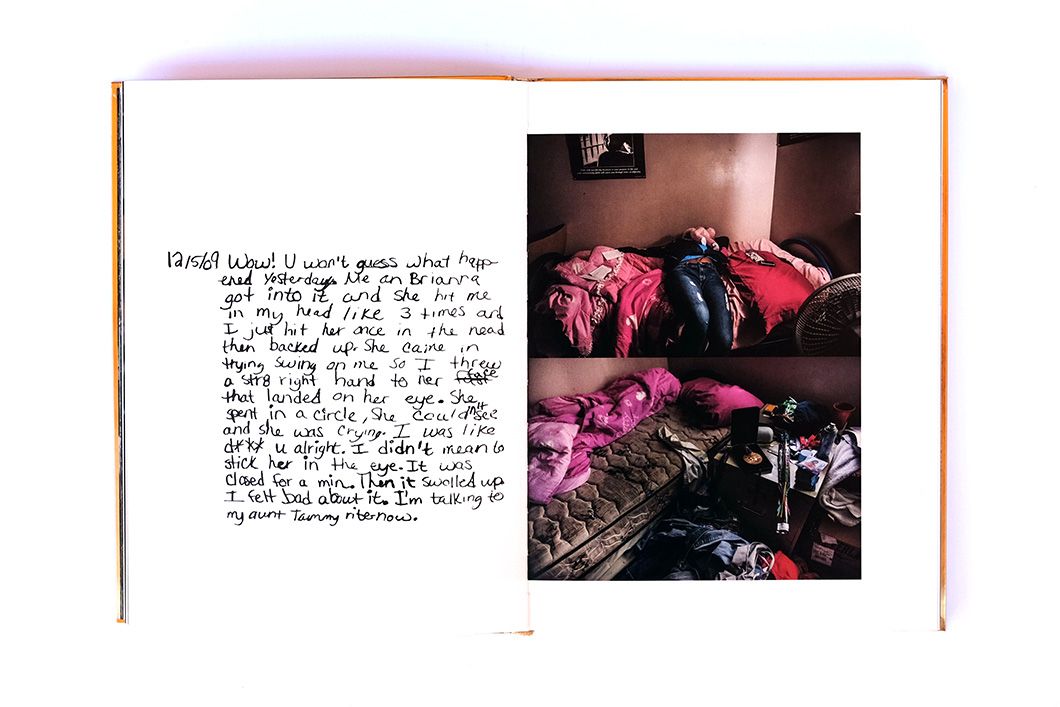 12/5/09 Wow! U won't guess what happ-
ened yesterday. Me an Brianna
got into it, and she hit me
in my head like 3 times and
I just hit her once in the head
then backed up. She came in
trying swing on me so I threw
a str8 right hand to her face
that landed on her eye. She
spent in a circle, she couldn't see
and she was crying. I was like
d*** u alright. I didn't mean to
stick her in the eye. It was
closed for a min. Then it swolled up
I felt bad about it. I'm talking to
my aunt Tammy rite now.